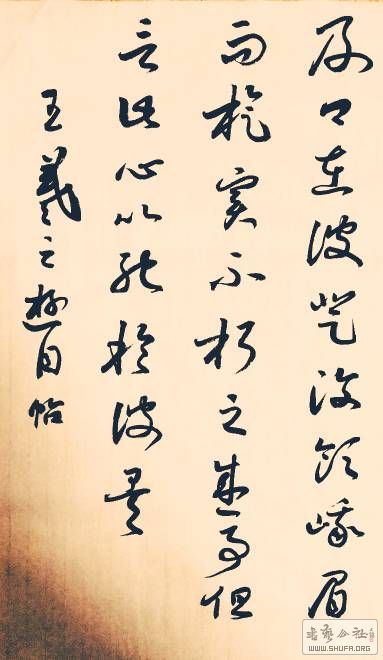 及卿在彼登汶領峨眉
而旋實不朽之盛事但
言此心以馳於彼矣
王羲之遊目帖
書藝公社
WWW.SHUFA.ORG